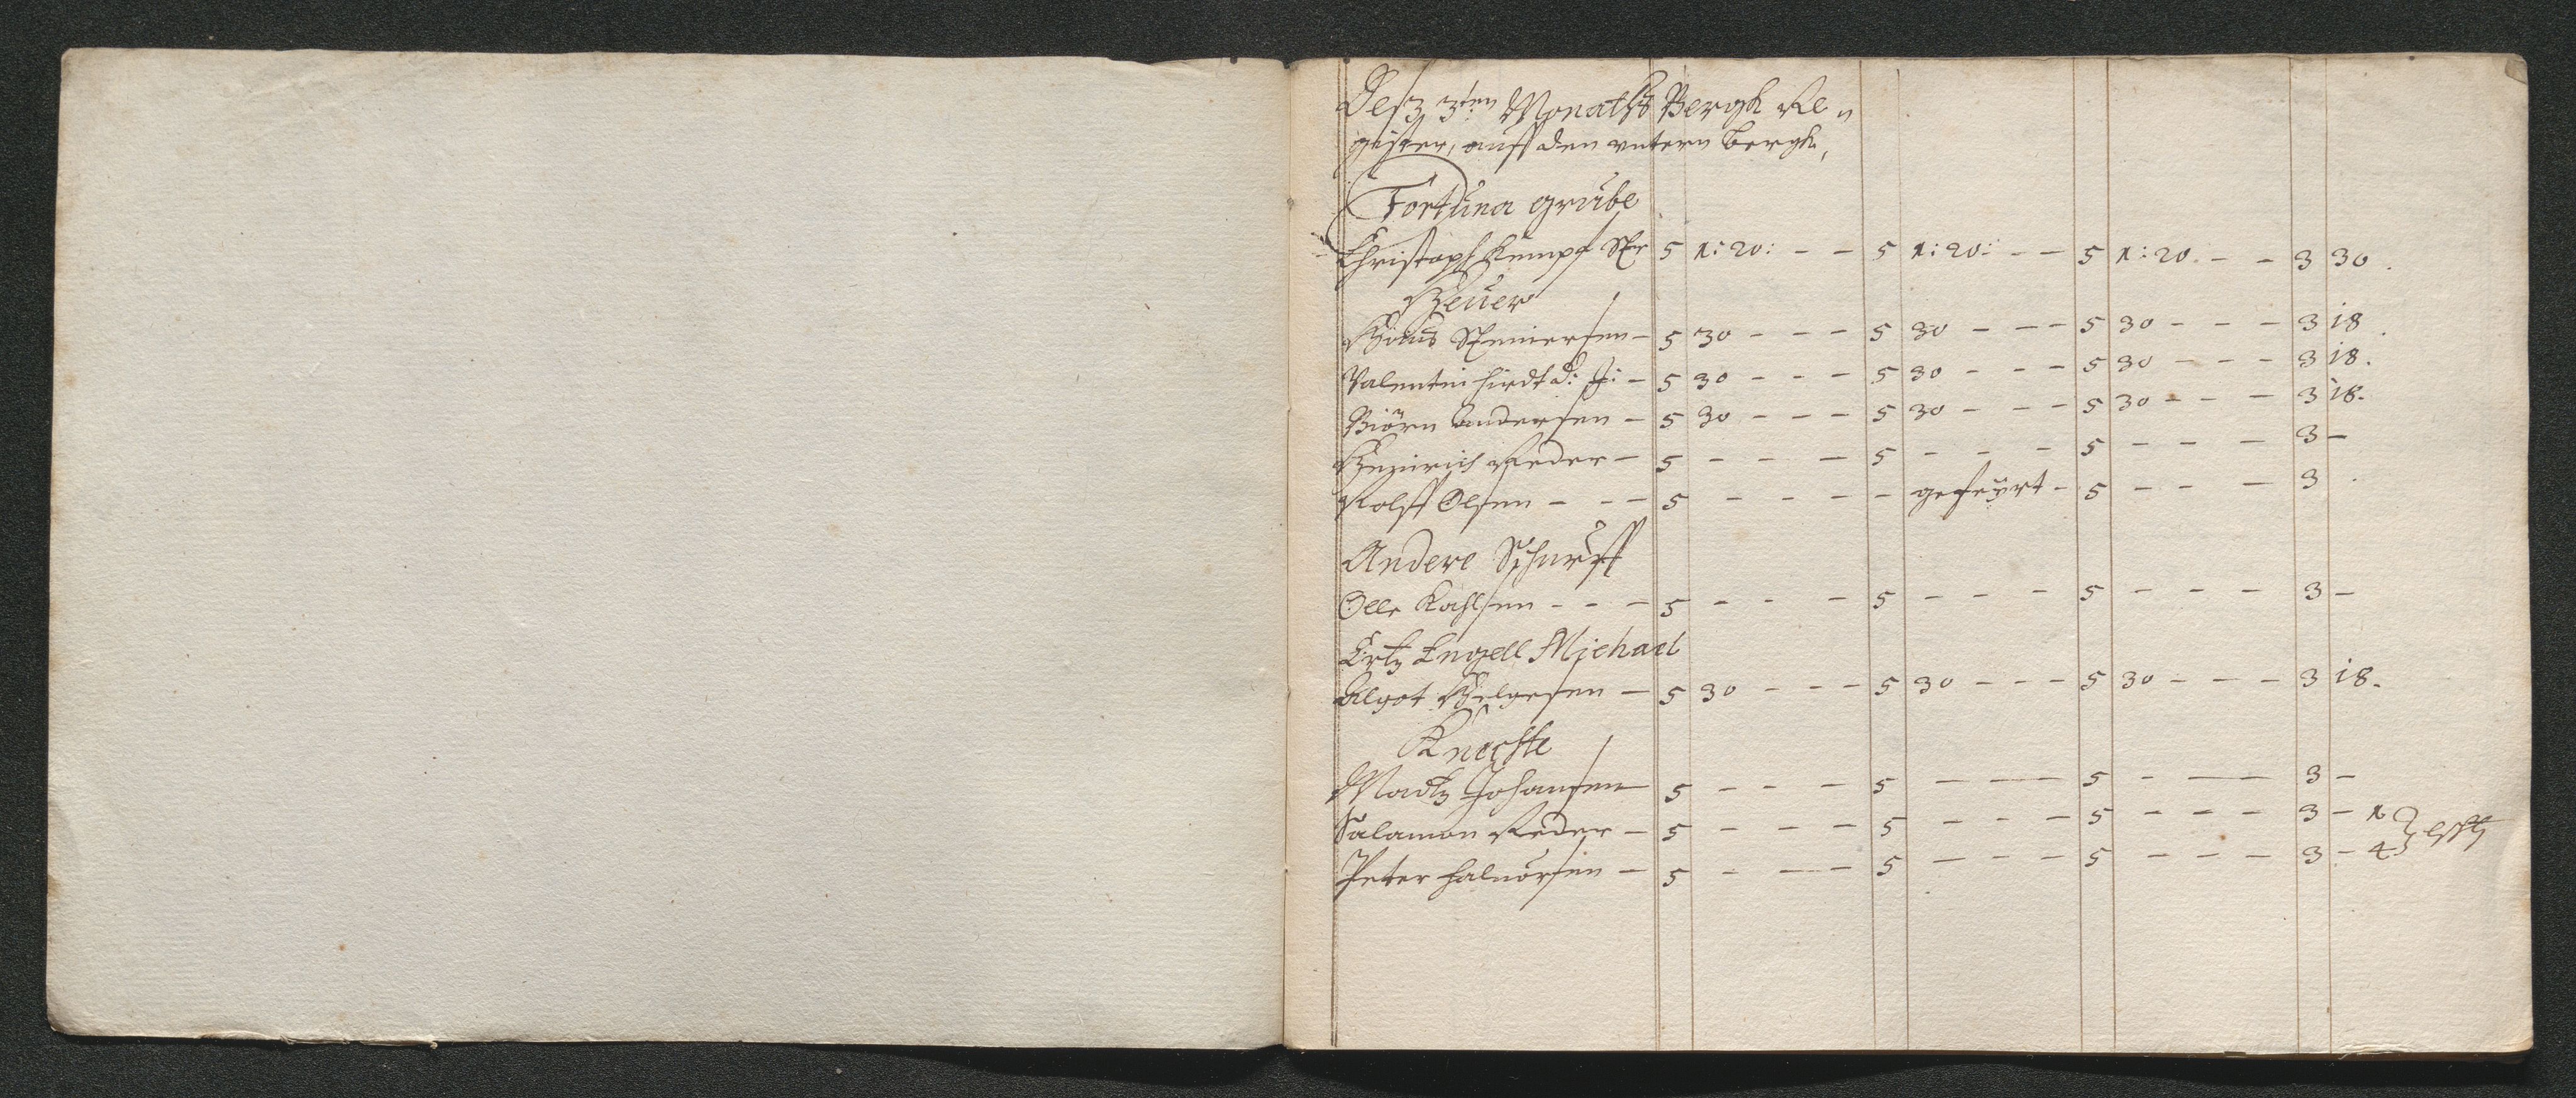 Desz 3ten Monaths Bergk Re„
gister, auff den untern bergk,
Fortuna grube
Christoph Kempf Str 5 1:20: - - 5 1:20: - - 5 1:20. - - 3 30.
Heuer
Steinersen - 5 30 - - - 5 30 - - - 5 30 - - - 3 18.
Valentin hirdt d: J: - 5 30 - - - 5 30 - - - 5 30 - - - 3 18.
Biörn Andersen - 5 30 - - - 5 30 - - - 5 30 - - - 3 18.
Heinrich Reder - 5 - - - 5 - - - 5 - - - 3 -
Rolff Olsen - - - 5 - - - - - gefeyrt - 5 - - - 3.
Andere Schurff
Olle Kahlsen - - - 5 - - - 5 - - - 5 - - - 3 -
Ertz Engell Michael
Algot Helgesen - 5 30 - - - 5 30 - - - 5 30 - - - 3 18.
Knechte
Madtz Johansen 5 - - - 5 - - - 5 - - - 3 -
Salamon Reder - 5 - - - 5 - - - 5 - - - 3 - 1
Peter halvorsen - 5 - - - 5 - - - 5 - - - 3 - 4